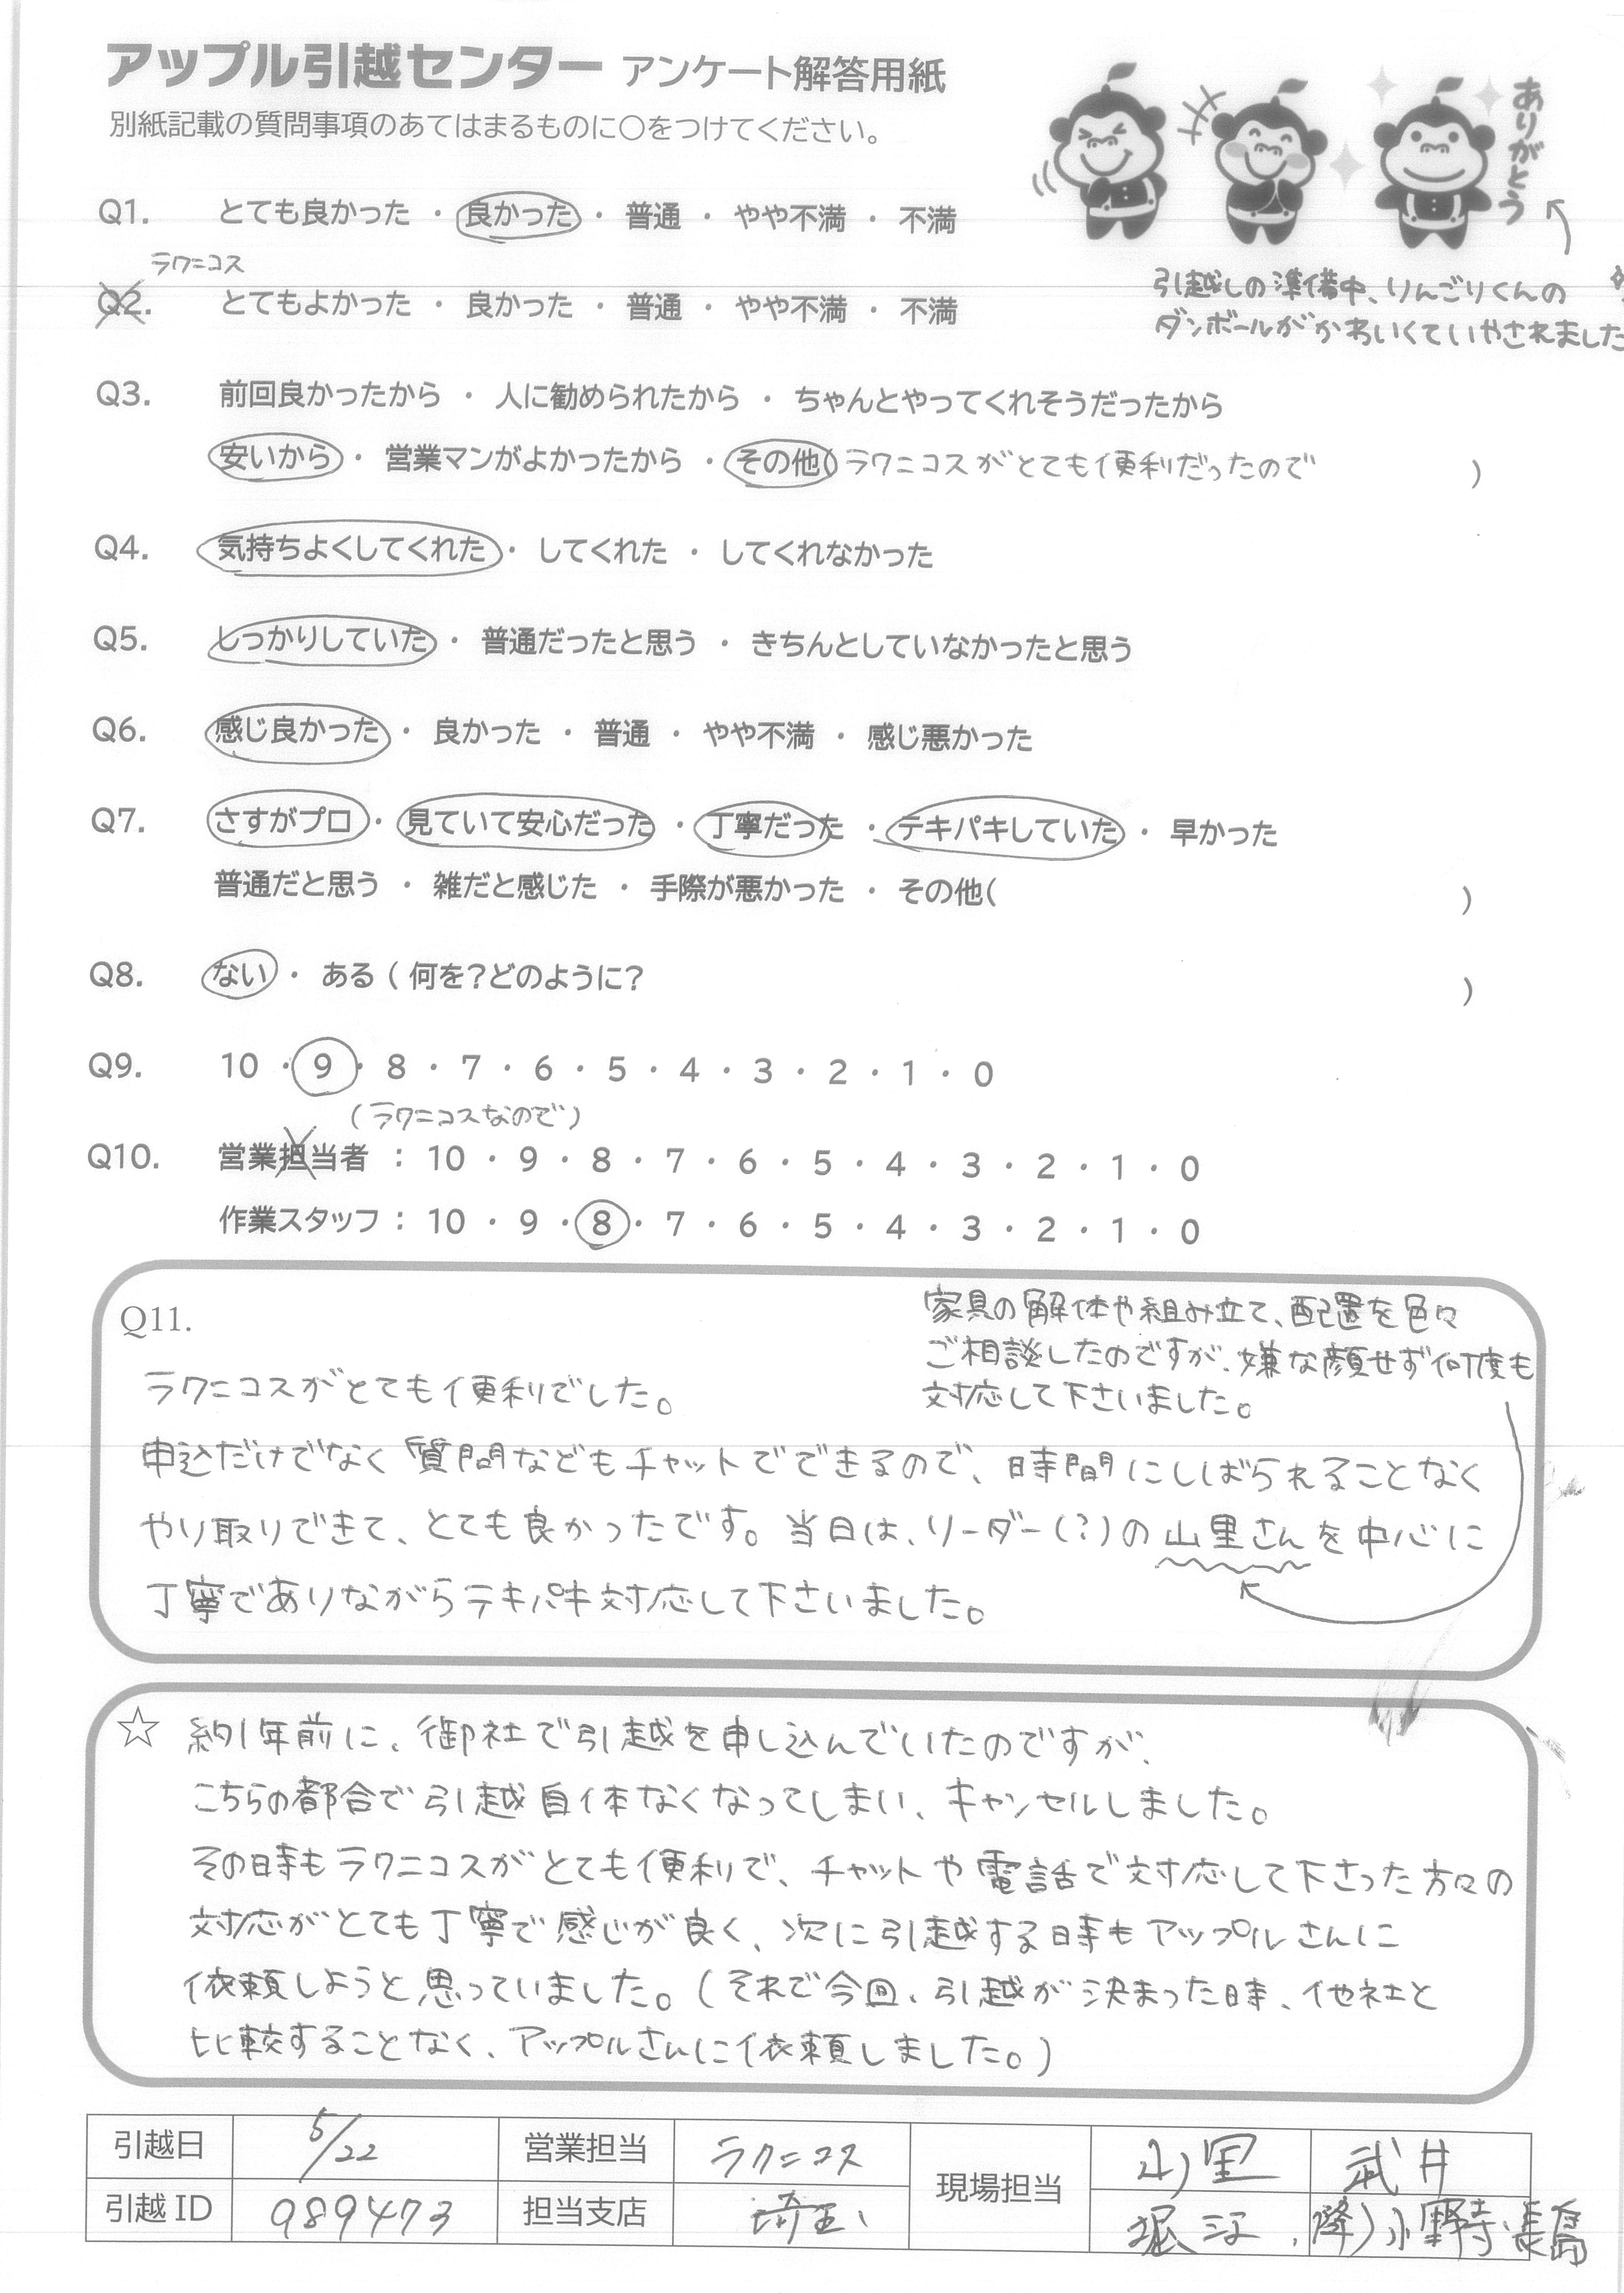 アップル引越センター アンケート解答用紙
別紙記載の質問事項のあてはまるものに○をつけてください。
ありがとう
引越しの準備中、りんごりくんの
ダンボールがかわいくていやされました
Q1. とても良かった ・ 良かった ・ 普通 ・ やや不満 ・ 不満
ラクニコス
Q2. とてもよかった ・ 良かった ・ 普通 ・ やや不満 ・ 不満
Q3. 前回良かったから ・ 人に勧められたから ・ ちゃんとやってくれそうだったから
安いから ・ 営業マンがよかったから ・ その他( ラクニコスがとても便利だったので )
Q4. 気持ちよくしてくれた ・ してくれた ・ してくれなかった
Q5. しっかりしていた ・ 普通だったと思う ・ きちんとしていなかったと思う
Q6. 感じ良かった ・ 良かった ・ 普通 ・ やや不満 ・ 感じ悪かった
Q7. さすがプロ ・ 見ていて安心だった ・ 丁寧だった ・ テキパキしていた ・ 早かった
普通だと思う ・ 雑だと感じた ・ 手際が悪かった ・ その他( )
Q8. ない ・ ある ( 何を?どのように? )
Q9. 10 ・ 9 ・ 8 ・ 7 ・ 6 ・ 5 ・ 4 ・ 3 ・ 2 ・ 1 ・ 0
(ラクニコスなので)
Q10. 営業担当者 : 10 ・ 9 ・ 8 ・ 7 ・ 6 ・ 5 ・ 4 ・ 3 ・ 2 ・ 1 ・ 0
作業スタッフ : 10 ・ 9 ・ 8 ・ 7 ・ 6 ・ 5 ・ 4 ・ 3 ・ 2 ・ 1 ・ 0
Q11.
家具の解体や組み立て、配置を色々
ご相談したのですが、嫌な顔せず何度も
対応して下さいました。
ラクニコスがとても便利でした。
申込だけでなく質問などもチャットでできるので、時間にしばられることなく
やり取りできて、とても良かったです。当日は、リーダー(?)の山里さんを中心に
丁寧でありながらテキパキ対応して下さいました。
☆ 約1年前に、御社で引越を申し込んでいたのですが、
こちらの都合で引越自体なくなってしまい、キャンセルしました。
その時もラクニコスがとても便利で、チャットや電話で対応して下さった方々の
対応がとても丁寧で感じが良く、次に引越する時もアップルさんに
依頼しようと思っていました。(それで今回、引越が決まった時、他社と
比較することなく、アップルさんに依頼しました。)
引越日 5/22 営業担当 ラクニコス 現場担当 山里 武井
引越ID 989473 担当支店 埼玉 堀江、降)小野寺・長島